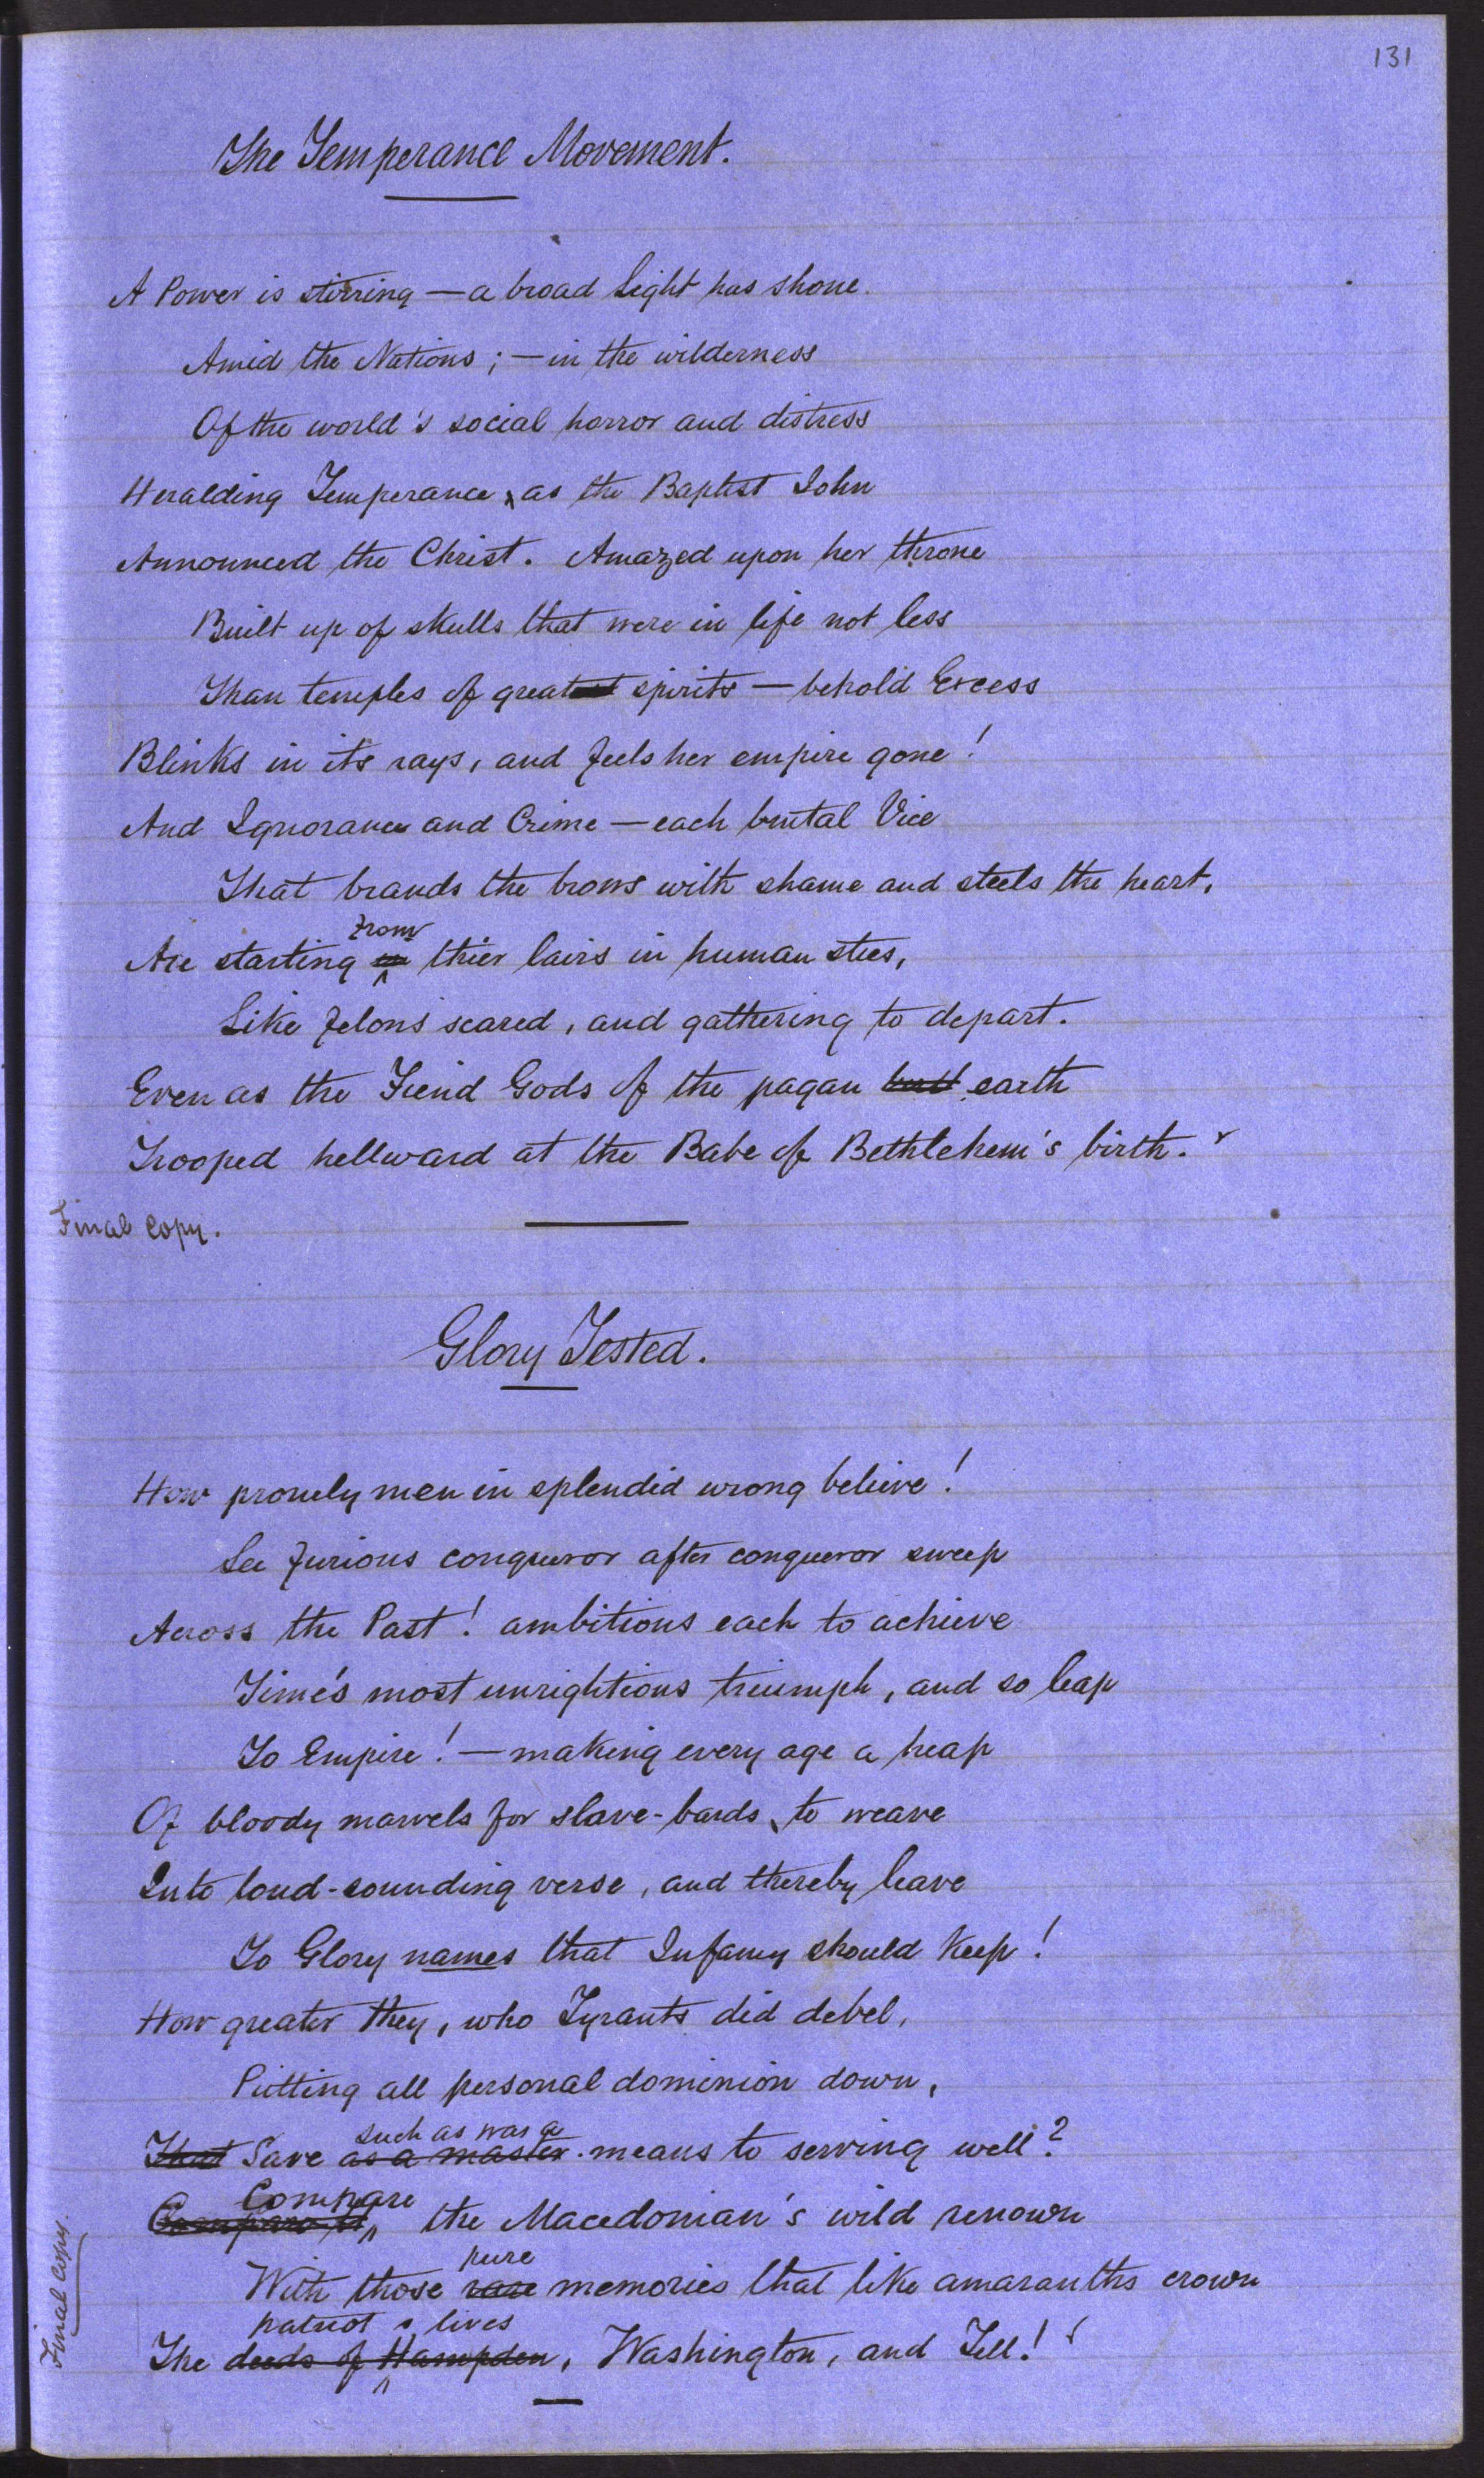 131
The Temperance Movement.
A Power is stirring — a broad Light has shone.
Amid the Nations; — in the wilderness
Of the world's social horror and distress
Heralding Temperance, as the Baptist John
Announced the Christ. Amazed upon her throne
Built up of skulls that were in life not less
Than temples of great spirits — behold Excess
Blinks in its rays, and feels her empire gone!
And Ignorance and Crime — each brutal Vice
That brands the brows with shame and steels the heart,
from
Are starting in thier lairs in human stees,
Like felons scared, and gathering to depart.
Even as the Fiend Gods of the pagan earth
Trooped hellward at the Babe of Bethlehem's birth.
Final Copy.
Glory Tested.
How pronely men in splendid wrong believe!
See furious conqueror after conqueror sweep
Across the Past! ambitious each to achieve
Time's most unrightious triumph, and so leap
To Empire! — making every age a heap
Of bloody marvels for slave-bards, to weave
Into loud-sounding verse, and thereby leave
To Glory names that Infamy should keep!
How greater they, who Tyrants did debel,
Putting all personal dominion down,
such as was a
That Save as a master means to serving well?
Compare
Compare it the Macedonian's wild renown
pure
With those rare memories that like amaranths crown
patriot lives
The deeds of Hampden, Washington, and Tell!
Final Copy.